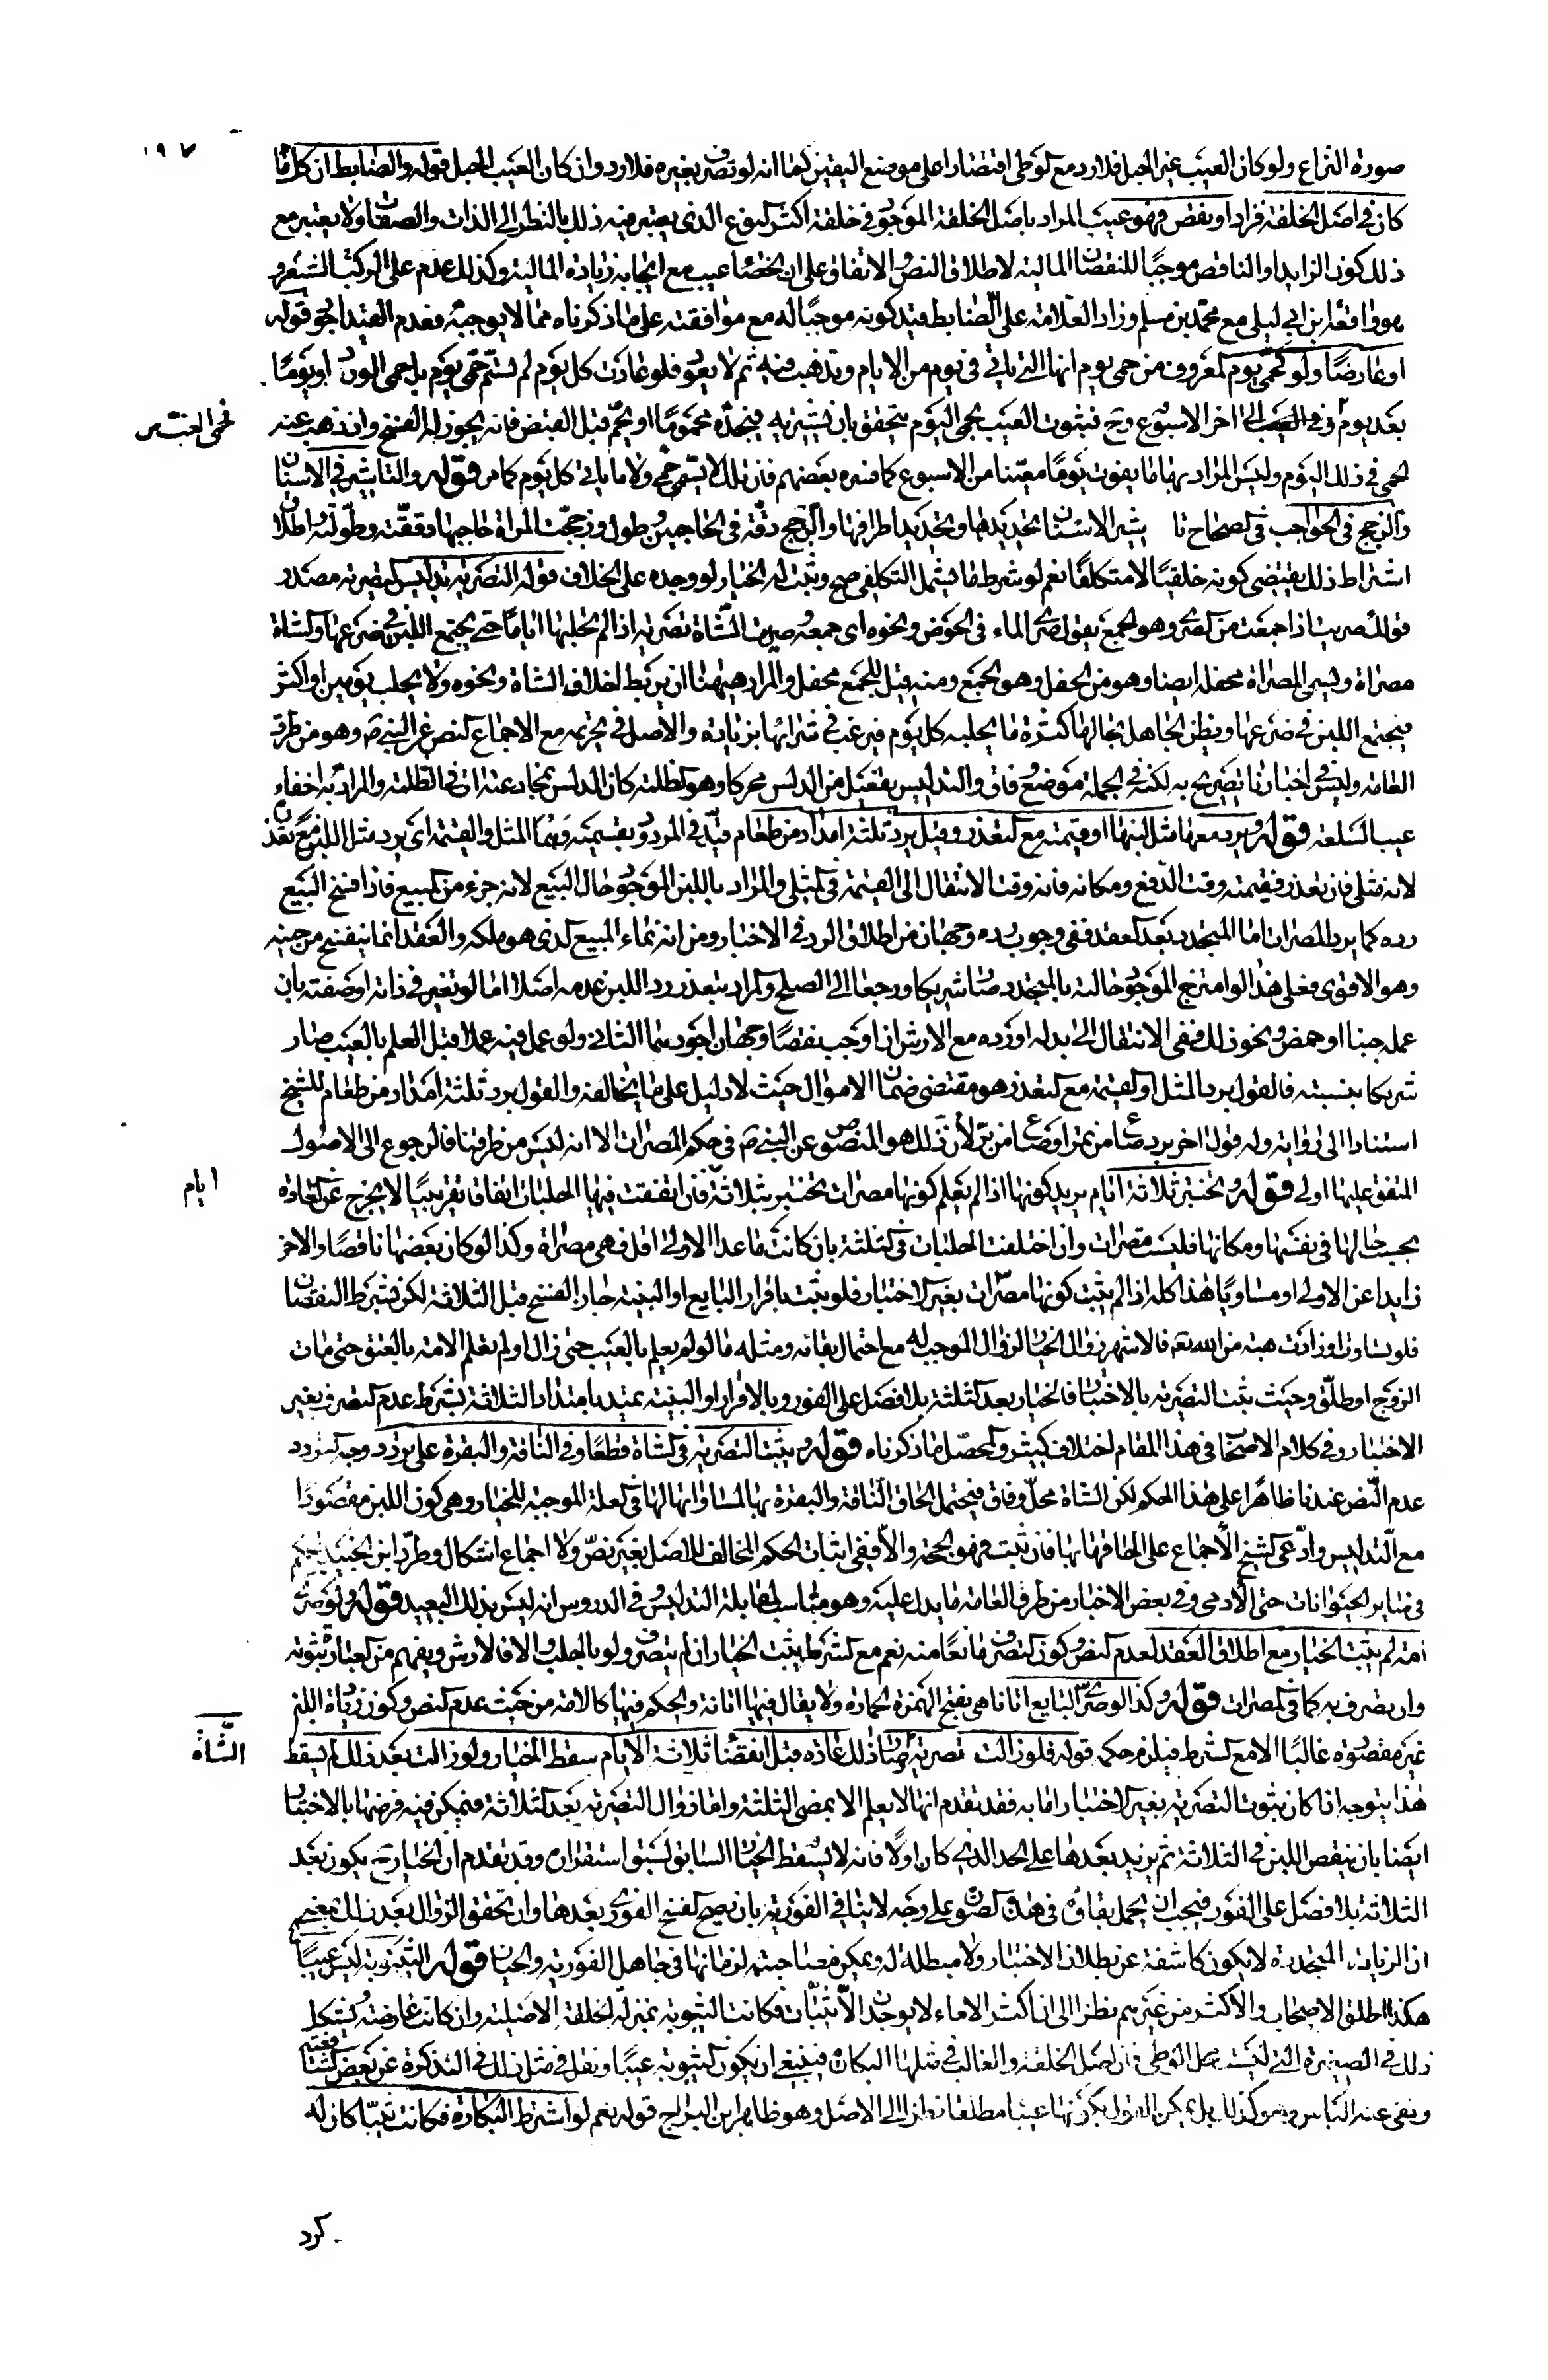 ١٩٧
صورة النزاع ولو كان العيب غير الحبل فلا رد مع الوطى اقتصارا على موضع اليقين كما انه لو تصرف بغيره فلا رد وان كان العيب الحبل قوله والضابط ان كل ما
كان فى اصل الخلقة فزاد او نقص فهو عيب المراد باصل الخلقة الموجود فى خلقة اكثر النوع الذى يعتبر فيه ذلك بالنظر الى الذات والصفات ولا يعتبر مع
ذلك كون الزايد او الناقص موجبًا للنقصان المالية لاطلاق النص والاتفاق على ان الخصاء عيب مع ايجابه زيادة المالية وكذلك عدم على الركب الشعر و
هو واقعة ابن ابى ليلى مع محمد بن مسلم وزاد العلامة على الضابط قيد كونه موجبًا له مع موافقته على ما ذكرناه مما لا يوجبه فعدم القيد اجود قوله
او عارضًا ولو كحمى يوم المعروف من حمى يوم انها التى ياتى فى يوم من الايام وتذهب فيه ثم لا يعود فلو عادت كل يوم لم تسم حمى يوم بل حمى الورد او يومًا
بعد يوم او فى اخر الاسبوع وح فثبوت العيب بحمى اليوم يتحقق بان يشتريه فيجده محمومًا او يحم قبل القبض فانه يجوز له الفسخ وان ذهب عنه
فحمى الغب ص
الحمى فى ذلك اليوم وليس المراد بها ما يفوت يومًا معينا من الاسبوع كما فسره بعضهم فان تلك لا يسمى حمى ولا ما ياتى كل يوم كما مر قوله والتاشير فى الاسنان
والزجج فى الحواجب فى الصحاح تا شير الاسنان تحديدها وتحديد اطرافها والزجج دقة فى الحاجبين وطول وزججت المراة حاجبها دققته وطولته واطلاق
اشتراط ذلك يقتضى كونه خلقيًا لا متكلفًا نعم لو شرط ما يشمل التكلفى صح وثبت له الخيار لو وجده على الخلاف قوله التصرية تدليس التصرية مصدر
قولك صريت اذا جمعت من الصرى وهو الجمع يقول صرى الماء فى الحوض ونحوه اى جمعه وصريت الشاة تصرية اذا لم تحلبها اياما حتى يجتمع اللبن فى ضرعها والشاة
مصراة وتسمى المصراة محفلة ايضا وهو من الحفل وهو الجمع ومنه قيل للجمع محفل والمراد هيهنا ان يربط اخلاف الشاة ونحوه ولا يحلب يومين او اكثر
فيجتمع اللبن فى ضرعها ويظن الجاهل بحالها كثرة ما يحلبه كل يوم فيرغب فى شرائها بزيادة والاصل فى تحريمه مع الاجماع النص عن النبى ص وهو من طرق
العامة وليس فى اخبارنا تصريح به لكنه فى الجملة موضع وفاق والتدليس تفعيل من الدلس محركا وهو الظلمة كان المدلس بمخادعته ات فى الظلمة والمراد به اخفاء
عيب السلعة قوله ويرد معها مثل لبنها او قيمته مع التعذر وقيل يرد ثلثة امداد من طعام قيد فى المردود بقسيمته وهما المثل والقيمة اى يرد مثل اللبن مع تعذره
لانه مثلى فان تعذر فقيمته وقت الدفع ومكانه فانه وقت الانتقال الى القيمة فى المثلى والمراد باللبن الموجود حال البيع لانه جزء من المبيع فاذا فسخ البيع
رده كما يرد المصرات اما المتجدد بعد العقد ففى وجوب رده وجهان من اطلاق الرد فى الاخبار ومن انه نماء المبيع الذى هو ملكه والعقد انما ينفسخ من حينه
وهو الاقوى فعلى هذا لو امتزج الموجود حالته بالمتجدد صارا شريكا ورجعا الى الصلح والمراد بتعذر رد اللبن عدمه اصلا اما لو تغير فى ذاته او صفته بان
عمله جبنا او حمض ونحو ذلك ففى الانتقال الى بدله او رده مع الارش ان اوجب نقصًا وجهان اجودهما الثانى ولو عمل فيه عملا قبل العلم بالعيب صار
شريكا بنسبته فالقول برد المثل او القيمة مع التعذر هو مقتضى ضمان الاموال حيث لا دليل على ما يخالفه والقول برد ثلثة امداد من طعام للشيخ
استنادا الى رواية وله قول اخر برد صاع من تمر او صاع من بر لان ذلك هو المنصوص عن النبى ص فى حكم المصرات الا انه ليس من طرقنا فالرجوع الى الاصول
المتفق عليها اولى قوله وتختبر ثلاثة ايام يريد كونها اذا لم يعلم كونها مصرات تختبر بثلاثة فان اتفقت فيها الحلبات اتفاقا تقريبيًا لا يخرج عن العادة
ايام
بحسب حالها فى نفسها ومكانها فليست مصرات وان اختلفت الحلبات فى الثلثة بان كانت ما عدا الاولى اقل فهى مصراة وكذا لو كان بعضها ناقصًا والاخر
زايدا عن الاولى او مساويًا هذا كله اذا لم يثبت كونها مصرات بغير الاختبار فلو ثبت باقرار البايع او البينة جاز الفسخ قبل الثلاثة لكن بشرط النقصان
فلو تساوت او زادت هبة من الله تع فالاشهر زوال الخيار لزوال الموجب له مع احتمال بقائه ومثله ما لو لم يعلم بالعيب حتى زال او لم تعلم الامة بالعتق حتى مات
الزوج او طلق وحيث يثبت التصرية بالاختبار فالخيار بعد الثلثة بلا فصل على الفور وبالاقرار او البينة يمتد بامتداد الثلاثة بشرط عدم التصرف بغير
الاختبار وفى كلام الاصحاب فى هذا المقام اختلاف كثير والمحصل ما ذكرناه قوله ويثبت التصرية فى الشاة قطعًا وفى الناقة والبقرة على تردد وجه التردد
عدم النص عندنا ظاهرًا على هذا الحكم لكن الشاة محل وفاق فيحتمل الحاق الناقة والبقرة بها لمساواتهما لها فى العلة الموجبة للخيار وهى كون اللبن مقصودًا
مع التدليس وادعى الشيخ الاجماع على الحاقهما بها فان ثبت فهو الحجة والا ففى اثبات الحكم المخالف للاصل بغير نص ولا اجماع اشكال وطرد ابن الجنيد الحكم
فى ساير الحيوانات حتى الادمى وفى بعض الاخبار من طرق العامة ما يدل عليه وهو مناسب لمقابلة التدليس وفى الدروس انه ليس بذلك البعيد قوله ولو صرى
امة لم يثبت الخيار مع اطلاق العقد لعدم النص وكون التصرف مانعًا منه نعم مع الشرط يثبت الخيار ان لم يتصرف ولو بالحلب والا فالارش ويفهم من العبارة ثبوته
وان تصرف به كما فى المصرات قوله وكذا لو صرى البايع اتانا هى بفتح الهمزة الحمارة ولا يقال فيها اتانة والحكم فيها كالامة من حيث عدم النص وكون زيادة اللبن
غير مقصودة غالبًا الا مع الشرط فيلزم حكمه قوله فلو زالت تصرية وصار ذلك عادة قبل انقضاء ثلاثة الايام سقط الخيار ولو زالت بعد ذلك لم يسقط
الشّاة
هذا يتوجه اذا كان ثبوت التصرية بغير الاختبار اما به فقد تقدم انها لا يعلم الا بمضى الثلثة واما زوال التصرية بعد الثلاثة فيمكن فيه فرضها بالاختبار
ايضا بان ينقص اللبن فى الثلاثة ثم يزيد بعدها على الحد الذى كان اولًا فانه لا يسقط الخيار السابق لسبق استقراره وقد تقدم ان الخيار ح يكون بعد
الثلاثة بلا فصل على الفور فيجب ان يحمل بقاؤه فى هذه الصورة على وجه لا ينافى الفورية بان يصح الفسخ الفورى بعدها وان تحقق الزوال بعد ذلك بمعنى
ان الزيادة المتجددة لا يكون كاشفة عن بطلان الاختبار ولا مبطلة له ويمكن مصاحبته لزمانها فى جاهل الفورية والخيار قوله الثيبوبة ليس عيبًا
هكذا اطلق الاصحاب والاكثر من غيرهم نظرا الى ان اكثر الاماء لا يوجدن الا ثيبات فكانت الثيبوبة بمنزلة الخلقة الاصلية وان كانت عارضة ويشكل
ذلك فى الصغيرة التى ليست محل الوطى فان اصل الخلقة والغالب فى مثلها البكارة فينبغى ان يكون الثيبوبة عيبًا ونقل فى مثل ذلك فى التذكرة عن بعض الشافعية
ونفى عنه الباس وهو كذلك بل يمكن القول بكونها عيبا مطلقا نظرا الى الاصل وهو ظاهر ابن البراج قوله نعم لو اشترط البكارة فكانت ثيبا كان له
كرد